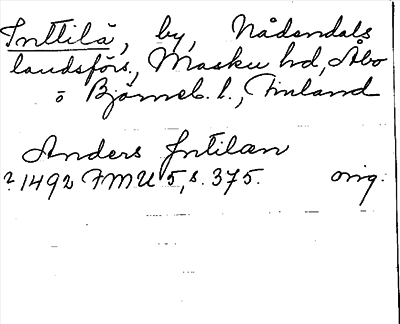 Inttilä, by, Nådendals
landsförs., Masku hd, Åbo
o Björneb. l., Finland
Anders Jntilæn
? 1492 FMU 5, s. 375. orig.